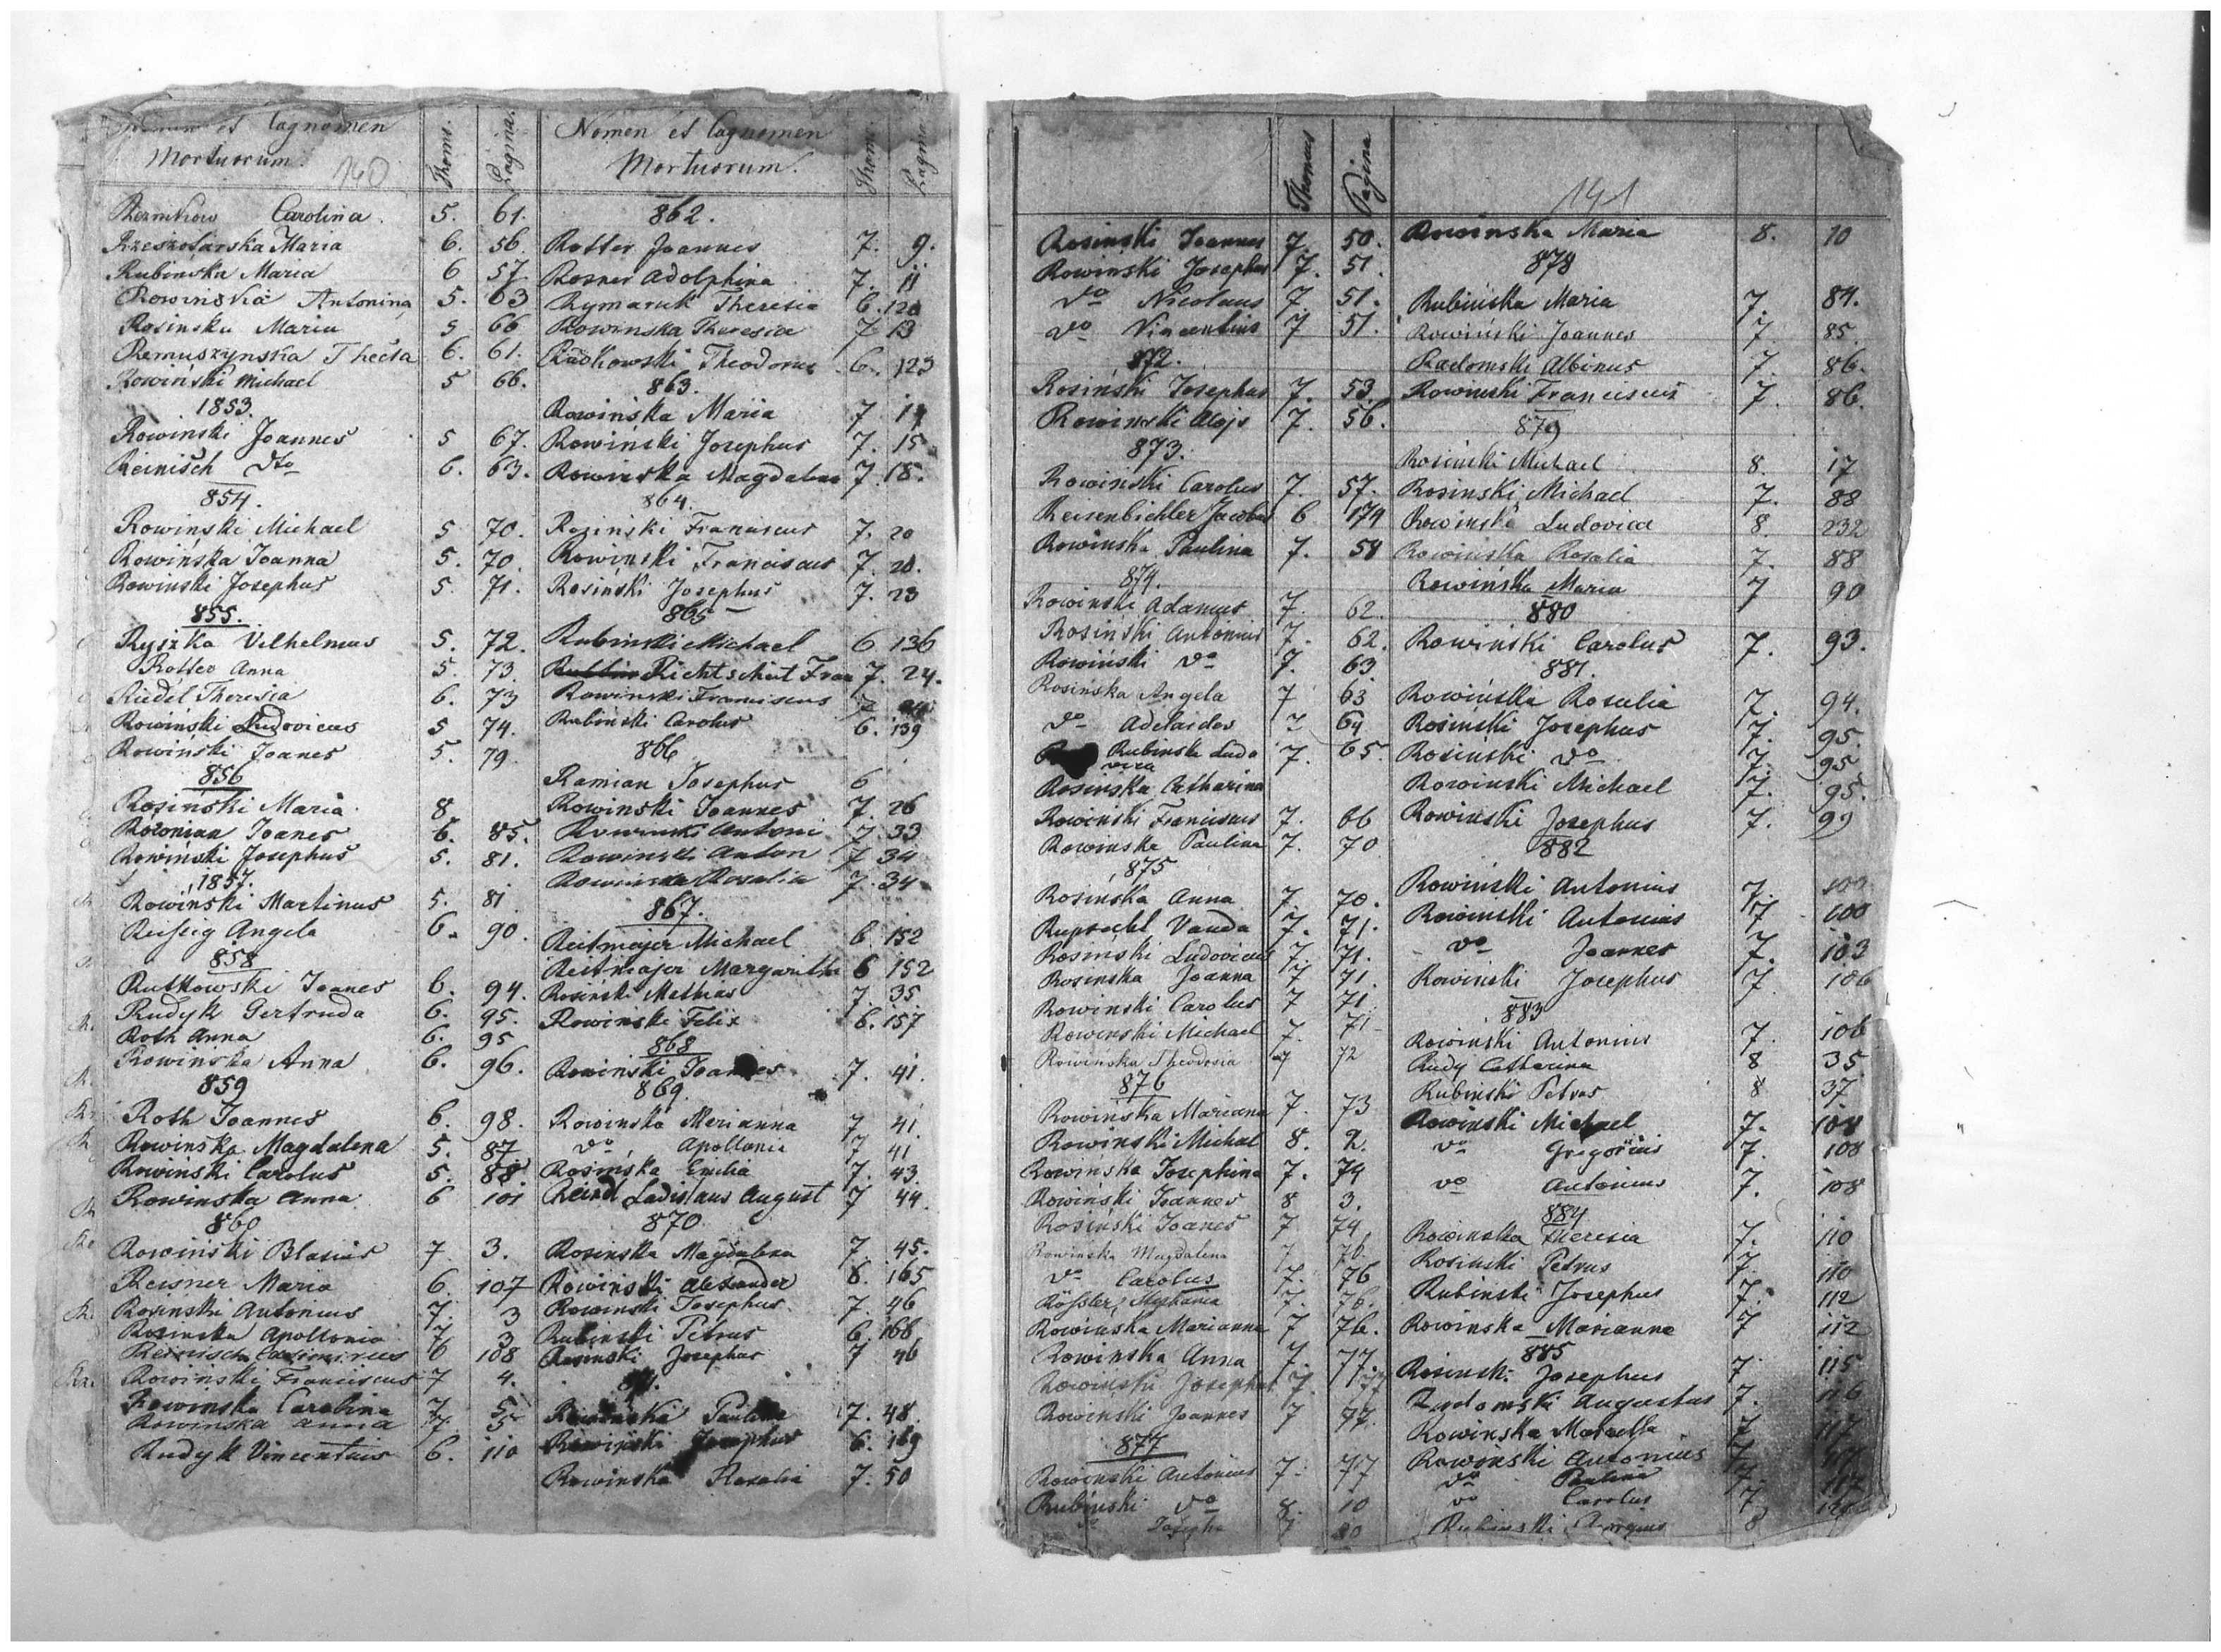 Nomen et Cagnomen
Mortuorum.
140
Thom.
Pagina.
Carolina 5. 61.
Rzeszotarska Maria 6. 56.
Rubińska Maria 6 57
Rowińska Antonina 5. 63
Rosinska Maria 5 66
Remuszynska Thecla 6. 61.
Rowiński Michael 5 66.
1853.
Rowinski Joannes 5 67.
Reinisch dto 6. 63.
854.
Rowinski Michael 5 70.
Rowinska Joanna 5. 70.
Rowinski Josephus 5. 71.
855.
Ryszka Vilhelmus 5. 72.
Rotter Anna 5. 73.
Riedel Theresia 6. 73
Rowiński Ludovicus 5 74.
Rowinski Joanes 5. 79.
856
Rosiński Maria 8.
Joanes 6. 85.
Rowiński Josephus 5. 81.
1857.
Rowiński Martinus 5. 81
Angela 6. 90.
858
Rutkowski Joanes 6. 94.
Rudyk Gertruda 6. 95.
Roth Anna 6. 95
Rowińska Anna 6. 96.
859
Roth Joannes 6. 98.
Rowinska Magdalena 5. 87
Rowinski Carolus 5. 88.
Rowinska Anna 6 101
860
Rowiński Blasius 7. 3.
Reisner Maria 6. 107
Rosinski Antonius 7. 3
Rosinska Apollonia 7 3
Reinisch Casimirus 6 108
Rowinski Franciscus 7 4.
Rowinska Carolina 7 5
Rowinska Anna 7. 5
Rudyk Vincentius 6. 110
Nomen et Cagnomen
Mortuorum.
Thom.
Pagina
862.
Rotter Joannes 7. 9.
Rosner Adolphina 7. 11
Rymaruk Theresia 6. 120
Rowinska Theresia 7 13
Theodorus 6. 123
863.
Rowińska Maria 7 14
Rowiński Josephus 7. 15
Rowinska Magdalena 7. 18.
864.
Rosiński Franciscus 7. 20
Rowinski Franciscus 7. 20.
Rosiński Josephus 7. 23
865
Rubinski Michael 6 136
Richtscheit Fran 7. 24.
Rowinski Franciscus 7
Rubinski Carolus 6. 139
866
Ramian Josephus 6
Rowinski Joannes 7. 26
Rowinski Antoni 7 33
Rowinski Anton 7 34
Rowinska Rosalia 7. 34
867.
Reitmajer Michael 6. 152
Reitmajer Margaritha 6 152
Rosiński Mathias 7. 35.
Rowiński Felix 6. 157
868
Rowinski Joannes 7. 41.
869.
Rowinska Marianna 7 41.
do Apollonia 7 41
Rosińska Emilia 7. 43.
Reindl Ladislaus August 7 44.
870.
Rosinska Magdalena 7. 45.
Rowinski Alexander 6. 165
Rowinski Josephus. 7. 46
Rubinski Petrus 6. 168
Rosinski Josephus 7 46
Rowinska Paulina 7. 48.
Rowinski Josephus 6. 169
Rowinska Rosalia 7. 50
Thomus
Pagina
Rosinski Joannes 7. 50.
Rowinski Josephus 7. 51.
do Nicolaus 7. 51.
do Vincentius 7 51.
872.
Rosiński Josephus 7. 53.
Rowinski Alojs 7. 56.
873.
Rowiński Carolus 7. 57.
Reisenbichler Jacobus 6 179
Rowinska Paulina 7. 58
874.
Rowinski Adamus 7. 62.
Rosiński Antonius 7. 62.
Rowiński do 7. 63
Rosińska Angela 7 63
do Adelaides 7 64
Rubinska Ludo
vica 7. 65.
Rosinska Catharina
Rowinski Franciscus 7. 66
Rowinska Paulina 7. 70
875
Rosińska Anna 7. 70.
Ruprecht Vanda 7. 71.
Rosinski Ludovicus 7. 71.
Rosinska Joanna 7 71.
Rowinski Carolus 7 71
Rowinski Michael 7. 71
Rowinska Theodosia 7 72
876
Rowińska Mariana 7. 73
Rowinski Michal 8. 2.
Rowinska Josephina 7. 74
Rowiński Joannes 8 3.
Rosiński Joanes 7 74.
Rowinska Magdalena 7. 76.
do Carolus 7. 76
Rössler 7. 76.
Rowinska Marianna 7 76.
Rowinska Anna 7. 77.
Rowinski Josephus 7. 77
Rowinski Joannes 7 77.
877
Rowinski Antonius 7. 77
Rubinski do 8. 10
Josepha 7 80
141
Rowinska Maria 8. 10
878
Rubińska Maria 7. 84.
Rowiński Joannes 7 85.
Radomski Albinus 7. 86.
Rowinski Franciscus 7. 86.
879
Rosinski Michael 8. 17
Rosinski Michael 7. 88
Rowinska Ludovica 8. 232
Rowinska Rosalia 7. 88
Rowińska Maria 7 90
880
Rowinski Carolus 7. 93.
881.
Rowińska Rosalia 7. 94.
Rosinski Josephus 7. 95.
Rosinski do 7. 95
Rowinski Michael 7. 95.
Rowinski Josephus 7. 99
882
Rowinski Antonius 7.
Rowinski Antonius 7 100
do Joannes 7. 103
Rowinski Josephus 7 106
883
Rowinski Antonius 7. 106
Rudy Catharina 8 35
Rubinski Petrus 8 37
Rowinski Michael 7. 108
do Gregorius 7. 108
do Antonius 7. 108
884
Rowinska Theresia 7. 110
Rosinski Petrus 7. 110
Rubinski Josephus 7. 112
Rowinska Marianna 7 112
885
Rosinski Josephus 7. 115
Radomski Augustus 7. 116
Rowinska Marcella 7 117
Rowinski Antonius 7 117
do Paulina 7 117
do Carolus 7
Rubinski 8